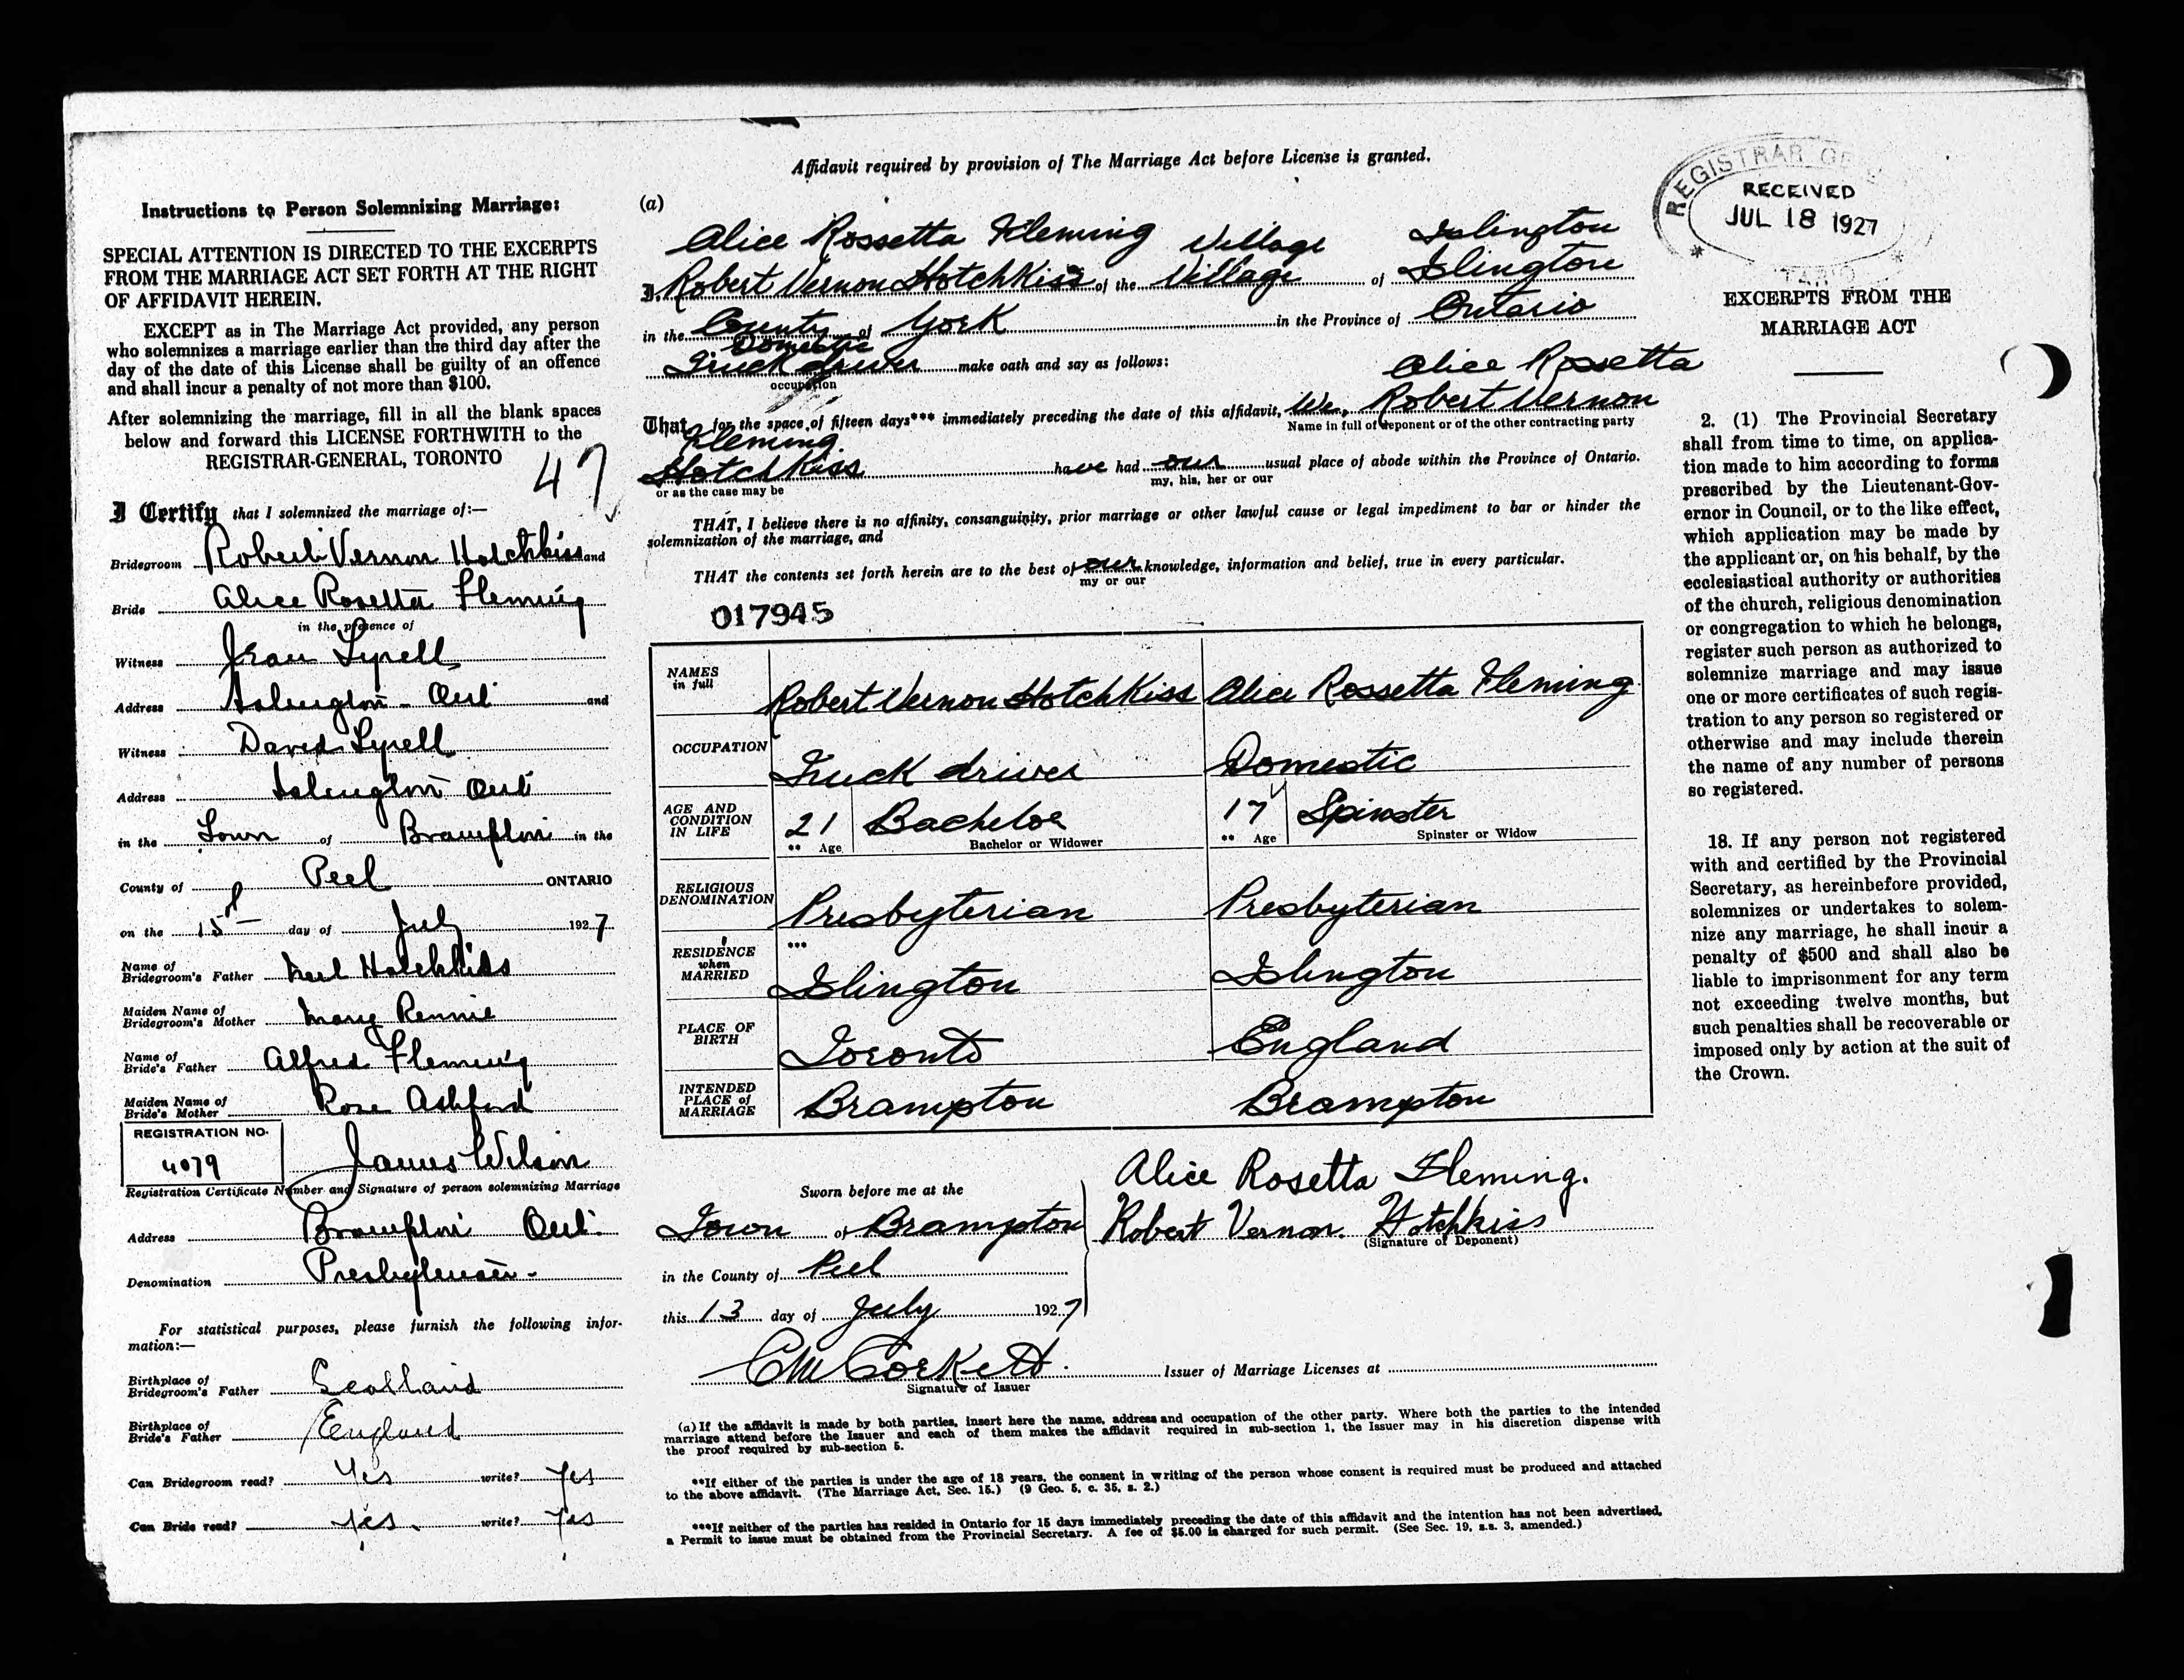 Affidavit required by provision of The Marriage Act before License is granted.
Instructions to Person Solemnizing Marriage:
SPECIAL ATTENTION IS DIRECTED TO THE EXCERPTS
FROM THE MARRIAGE ACT SET FORTH AT THE RIGHT
OF AFFIDAVIT HEREIN.
EXCEPT as in The Marriage Act provided, any person
who solemnizes a marriage earlier than the third day after the
day of the date of this License shall be guilty of an offence
and shall incur a penalty of not more than $100.
After solemnizing the marriage, fill in all the blank spaces
below and forward this LICENSE FORTHWITH to the
REGISTRAR-GENERAL, TORONTO
47
I Certify that I solemnized the marriage of:—
Bridegroom Robert Vernon Hotchkiss and
Bride Alice Rosetta Fleming
in the presence of
Witness Jean Lyrell
Address Islington - Ont and
Witness David Lyrell
Address Islington Ont
in the Town of Brampton in the
County of Peel ONTARIO
on the 15th day of July 1927
Name of
Bridegroom's Father Neil Hotchkiss
Maiden Name of
Bridegroom's Mother Mary Rennie
Name of
Bride's Father Alfred Fleming
Maiden Name of
Bride's Mother Rose Ashford
REGISTRATION NO.
4079 James Wilson
Registration Certificate Number and Signature of person solemnizing Marriage
Address Brampton Ont.
Denomination Presbyterian -
For statistical purposes, please furnish the following infor-
mation:—
Birthplace of
Bridegroom's Father Scotland
Birthplace of
Bride's Father England
Can Bridegroom read? Yes write? Yes
Can Bride read? Yes. write? Yes
(a)
Alice Rossetta Fleming Village Islington
I, Robert Vernon Hotchkiss of the Village of Islington
in the County of York in the Province of Ontario
Domestic
Truck driver make oath and say as follows:
occupation
Alice Rossetta
That, for the space of fifteen days*** immediately preceding the date of this affidavit, We, Robert Vernon
Name in full of deponent or of the other contracting party
Fleming
Hotchkiss have had our usual place of abode within the Province of Ontario.
or as the case may be my, his, her or our
THAT, I believe there is no affinity, consanguinity, prior marriage or other lawful cause or legal impediment to bar or hinder the
solemnization of the marriage, and
THAT the contents set forth herein are to the best of our knowledge, information and belief, true in every particular.
my or our
017945
NAMES
in full
Robert Vernon Hotchkiss Alice Rossetta Fleming
OCCUPATION
Truck driver Domestic
AGE AND
CONDITION
IN LIFE
21 Bachelor 17 Spinster
** Age Bachelor or Widower ** Age Spinster or Widow
RELIGIOUS
DENOMINATION
Presbyterian Presbyterian
RESIDENCE
when
MARRIED
***
Islington Islington
PLACE OF
BIRTH
Toronto England
INTENDED
PLACE of
MARRIAGE
Brampton Brampton
Sworn before me at the
Town of Brampton
in the County of Peel
this 13 day of July 1927
Alice Rosetta Fleming.
Robert Vernon. Hotchkiss
(Signature of Deponent)
CM Corkett. Issuer of Marriage Licenses at
Signature of Issuer
(a) If the affidavit is made by both parties, insert here the name, address and occupation of the other party. Where both the parties to the intended
marriage attend before the Issuer and each of them makes the affidavit required in sub-section 1, the Issuer may in his discretion dispense with
the proof required by sub-section 5.
**If either of the parties is under the age of 18 years, the consent in writing of the person whose consent is required must be produced and attached
to the above affidavit. (The Marriage Act, Sec. 15.) (9 Geo. 5, c. 35, s. 2.)
***If neither of the parties has resided in Ontario for 15 days immediately preceding the date of this affidavit and the intention has not been advertised,
a Permit to issue must be obtained from the Provincial Secretary. A fee of $5.00 is charged for such permit. (See Sec. 19, s.s. 3, amended.)
REGISTRAR
RECEIVED
JUL 18 1927
EXCERPTS FROM THE
MARRIAGE ACT
2. (1) The Provincial Secretary
shall from time to time, on applica-
tion made to him according to forms
prescribed by the Lieutenant-Gov-
ernor in Council, or to the like effect,
which application may be made by
the applicant or, on his behalf, by the
ecclesiastical authority or authorities
of the church, religious denomination
or congregation to which he belongs,
register such person as authorized to
solemnize marriage and may issue
one or more certificates of such regis-
tration to any person so registered or
otherwise and may include therein
the name of any number of persons
so registered.
18. If any person not registered
with and certified by the Provincial
Secretary, as hereinbefore provided,
solemnizes or undertakes to solem-
nize any marriage, he shall incur a
penalty of $500 and shall also be
liable to imprisonment for any term
not exceeding twelve months, but
such penalties shall be recoverable or
imposed only by action at the suit of
the Crown.